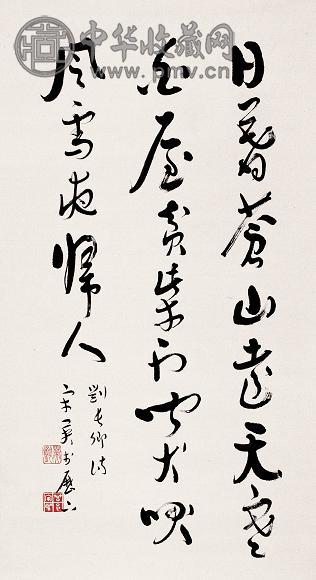 中华收藏网
www.pmv.cn
日暮蒼山遠天寒
白屋貧柴門聞犬吠
風雪夜歸人
劉長卿詩